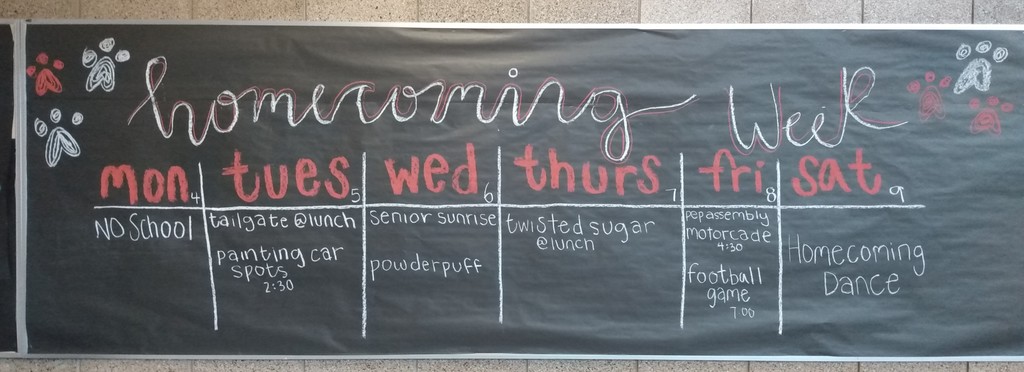 homecoming Week
mon 4 tues 5 wed 6 thurs 7 fri 8 sat 9
NO School
tailgate @lunch
painting car
spots
2:30
senior sunrise
powderpuff
twisted sugar
@lunch
pep assembly
motorcade
4:30
football
game
7:00
Homecoming
Dance